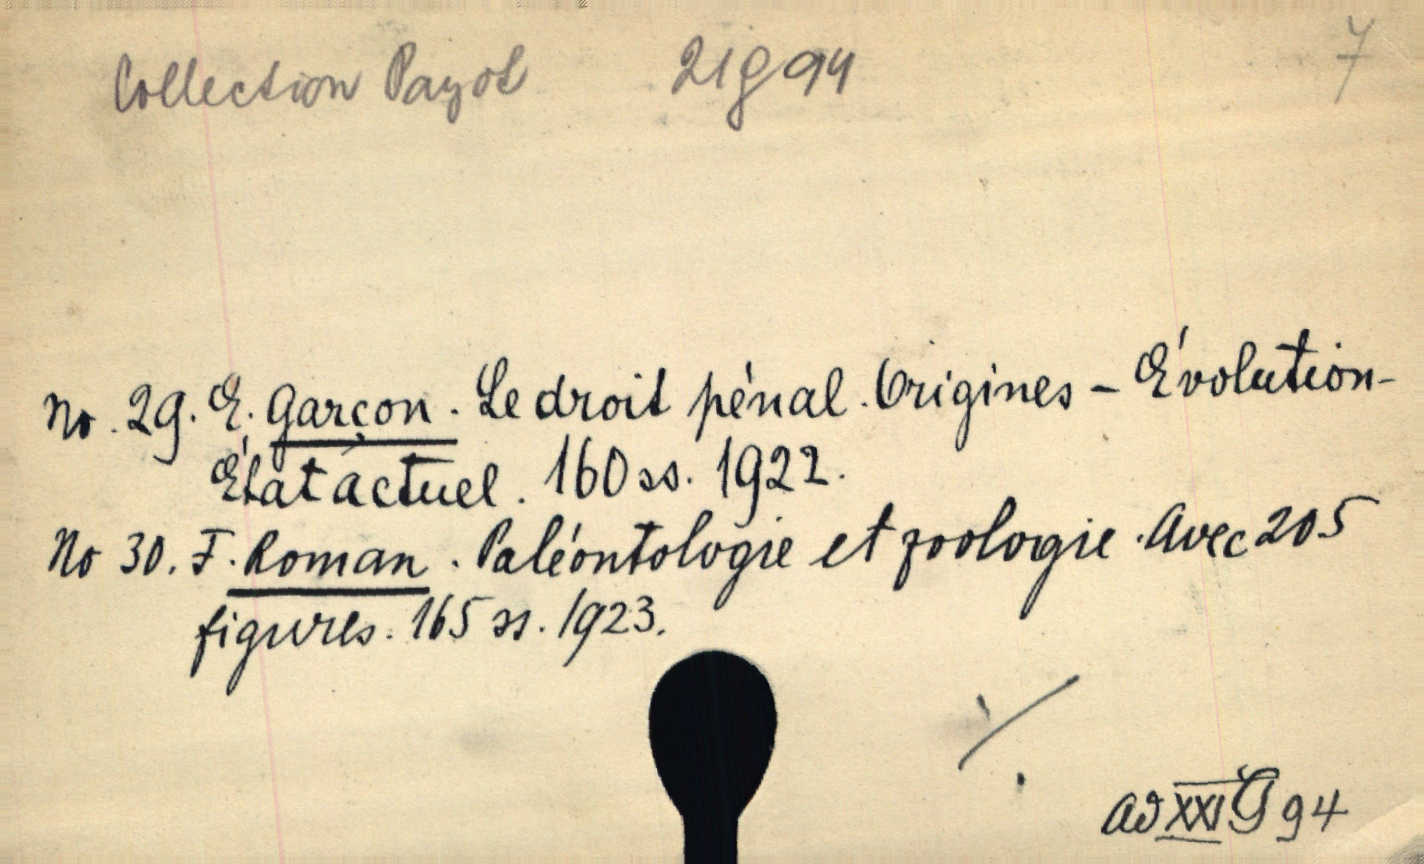 Collection Payot 21g94 7
No. 29. E. Garçon. Le droit pénal. Origines – Évolution-
État actuel. 160 ss. 1922.
No 30. F. Roman. Paléontologie et zoologie. Avec 205
figures. 165 ss. 1923.
ad XXI G 94